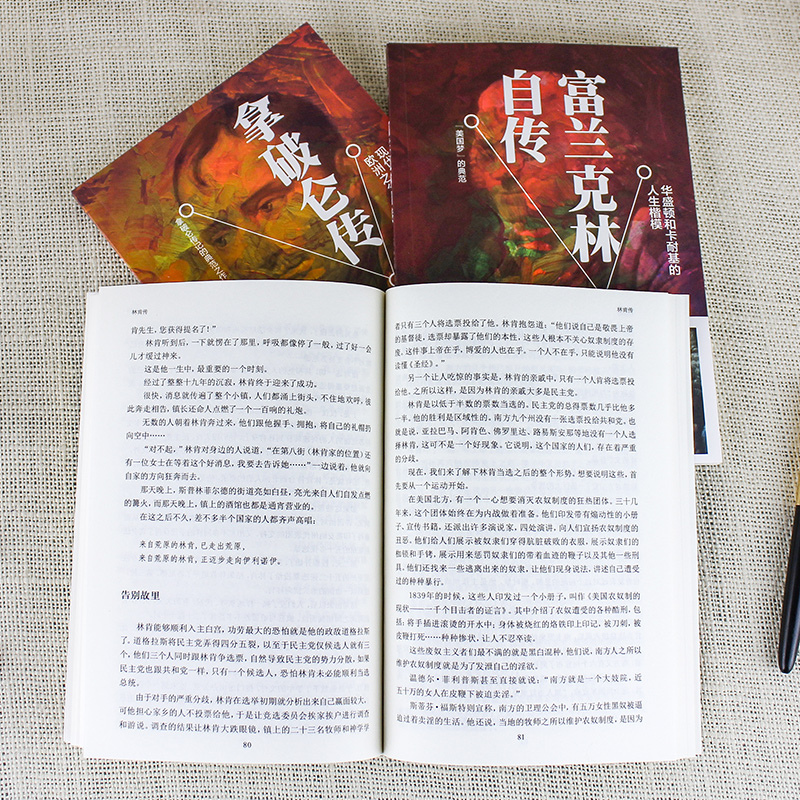 拿破仑传
现代
欧洲之
富兰克林
自传
“美国梦”的典范
华盛顿和卡耐基的
人生楷模
林肯传
肯先生，您获得提名了！”
林肯听到后，一下就愣在了那里，呼吸都像停了一般，过了好一会
儿才缓过神来。
这是他一生中，最重要的一个时刻。
经过了整整十九年的沉寂，林肯终于迎来了成功。
很快，消息就传遍了整个小镇，人们都涌上街头，不住地欢呼，彼
此奔走相告，镇长还命人点燃了一个一百响的礼炮。
无数的人朝着林肯奔过来，他们跟他握手、拥抱，将自己的礼帽扔
向空中……
“对不起，”林肯对身边的人说道，“在第八街（林肯家的位置）还
有一位女士在等着这个好消息，我要去告诉她……”一边说着，他就向
自家的方向狂奔而去。
那天晚上，斯普林菲尔德的街道亮如白昼，亮光来自人们自发点燃
的篝火，而那天晚上，镇上的酒馆也都是通宵营业的。
在这之后不久，差不多半个国家的人都齐声高唱：
来自荒原的林肯，已走出荒原，
来自荒原的林肯，正迈步走向伊利诺伊。
告别故里
林肯能够顺利入主白宫，功劳最大的恐怕就是他的政敌道格拉斯
了。道格拉斯将民主党弄得四分五裂，以至于民主党仅候选人就有三
个，他们三个人同时跟林肯争选票，自然导致民主党的势力分散，如果
民主党也跟共和党一样，只有一个候选人，恐怕林肯未必能顺利当选
总统。
由于对手的严重分歧，林肯在选举初期就分析出来自己赢面较大，
可他担心家乡的人不投票给他，于是让竞选委员会挨家挨户进行调查
和游说。调查的结果让林肯大跌眼镜，镇上的二十三名牧师和神学学
80
林肯传
者只有三个人将选票投给了他，林肯抱怨道：“他们说自己是敬畏上帝
的基督徒，选票却暴露了他们的本性，这些人根本不关心奴隶制度的存
废。这件事上帝在乎，博爱的人也在乎，一个人不在乎，只能说明他没有
读懂《圣经》。”
另一个让人吃惊的事实是，林肯的亲戚中，只有一个人肯将选票投
给他，之所以这样，是因为林肯的亲戚大多是民主党。
林肯是以低于半数的票数当选的，民主党的总得票数几乎比他多
一半。他的胜利是区域性的，南方九个州没有一张选票投给共和党。也
就是说，亚拉巴马、阿肯色、佛罗里达、路易斯安那等地没有一个人选
择林肯，这可不是一个好现象。它说明，这个国家的人们，存在着严重
的分歧。
现在，我们来了解下林肯当选之后的整个形势。想要说明这些，首
先要从一个运动开始。
在美国北方，有一个一心想要消灭农奴制度的狂热团体。三十几年
来，这个团体始终在为内战做着准备。他们印发带有煽动性的小册
子，宣传书籍，还派出许多演说家，四处演讲，向人们宣扬农奴制度的
丑恶。他们给人们展示被奴隶们穿得肮脏破败的衣服，展示奴隶们的
枷锁和手铐，展示用来惩罚奴隶们的带着血迹的鞭子以及其他一些刑
具。他们还找来一些逃离出来的奴隶，让他们现身说法，讲述自己遭受
过的种种暴行。
1839年的时候，这些人印发过一个小册子，叫作《美国农奴制的
现状——一千个目击者的证言》。其中介绍了农奴遭受的各种酷刑，包
括：将手插进滚烫的开水中；身体被烧红的烙铁印上印记，被刀刺，被
皮鞭打死……种种惨状，让人不忍卒读。
这些废奴主义者们最不满的就是黑白混种，他们说，南方人之所以
维护农奴制度就是为了发泄自己的淫欲。
温德尔·菲利普斯甚至直接就说：“南方就是一个大妓院，近
五十万的女人在皮鞭下被迫卖淫。”
斯蒂芬·福斯特则宣称，南方的卫理公会中，有五万女性黑奴被逼
迫过着卖淫的生活。他还说，当地的牧师之所以维护农奴制度，是因为
81